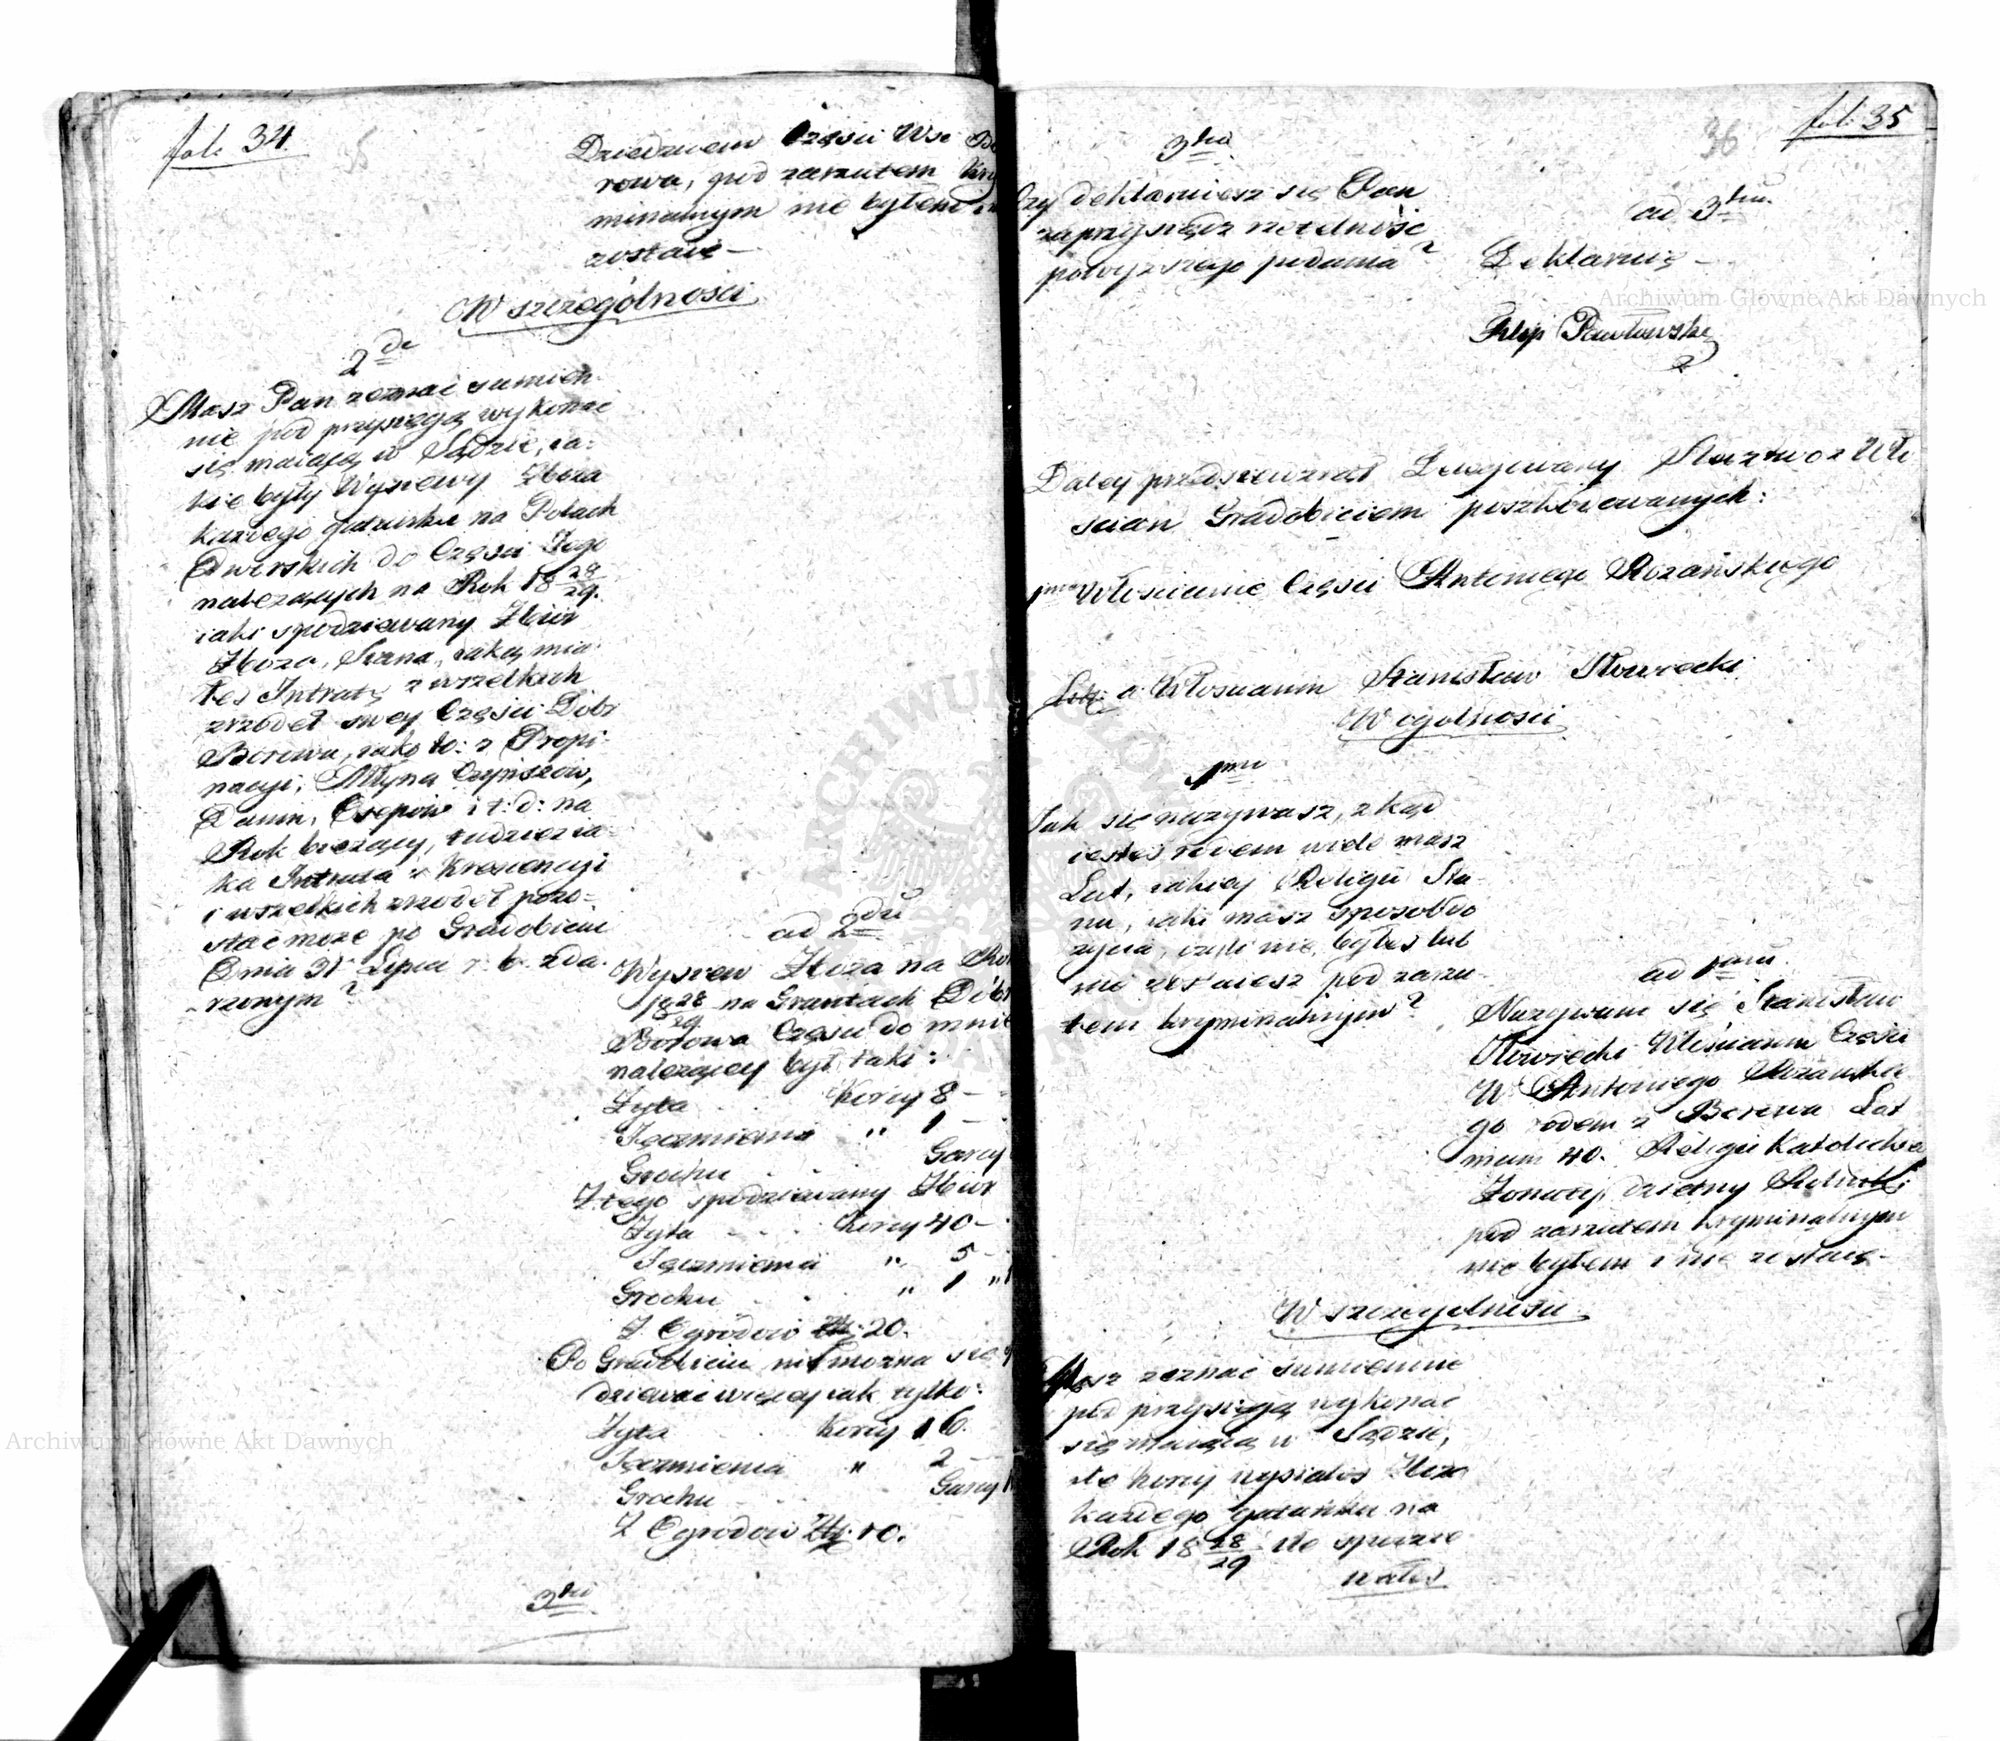 fol. 34
Dziedzicem Części Wsi Bo
rowa, pod zarzutem kry
minalnym nie byłem i n
zostaię —
W szczególnosci
2do
Masz Pan zeznać sumien-
nie pod przysięgą wykonać
się maiącą w Sądzie, ia:
kie były Wysiewy Zboża
każdego gatunku na Polach
Dworskich do Części Jego
należących na Rok 18 28/29.
iaki spodziewany Zbiór
Zboża, Siana, iaką mia-
łeś Intratę z wszelkich
zrzódeł swey Części Dóbr
Borowa, iako to: z Propi-
nacyi, Młyna Czynszów,
Danin, Osepów i t: d: na
Rok bieżący, tudzież ia-
ka Intrata z Krescencyi
i wszelkich zrzódeł pozo-
stać może po Gradobiciu
Dnia 31 Lipca r. b. zda-
rzonym?
ad 2du
Wysiew Zboża na Rok
18 28/29 na Gruntach Dóbr
Borowa Części do mnie
należącey był taki:
Żyta . . Korcy 8 —
Jęczmienia " 1 —
Grochu . . Garcy
Z tego spodziewany Zbiór
Żyta . . . Korcy 40 —
Jęczmienia " 5 —
Grochu . . " 1 "
Z Ogrodów Zł. 20.
Po Gradobiciu nie można się
dziewać więcey iak tylko:
Żyta . . Korcy 16.
Jęczmienia " 2 —
Grochu . . Garcy
Z Ogrodów Zł. 10.
3tio
36
fol: 35
3tio
Czy deklaruiesz się Pan
zaprzysiądz rzetelność
powyższego podania?
ad 3tiu.
Deklaruię —
Filip Pawłowski
Daley przedsiewziął Delegowany Słuchw z Wło
scian Gradobiciem poszkodowanych:
1mo Włościanie Części Antoniego Rożańskiego
a Włościanin Stanisław Nowiecki
W ogolnosci
1mu
Jak się nazywasz, zkąd
iesteś rodem wiele masz
Lat, iakiey Religii Sta-
nu, iaki masz sposób do
życia, czyli nie byłeś lub
nie zostaiesz pod zarzu-
tem kryminalnym?
ad 1mu.
Nazywam się Stanisław
Nowiecki Włościanin Części
W Antoniego Rożańskie
go rodem z Borowa Lat
mam 40. Religii Katolickiey
Żonaty, dzietny Rolnik,
pod zarzutem kryminalnym
nie byłem i nie zostaię —
W szczególnosci
Masz zeznać sumiennie
pod przysięgą wykonać
się maiącą w Sądzie,
ile korcy wysiałeś Zboża
każdego gatunku na
Rok 18 28/29 ile spodzie
wałeś
Archiwum Główne Akt Dawnych
Archiwum Główne Akt Dawnych